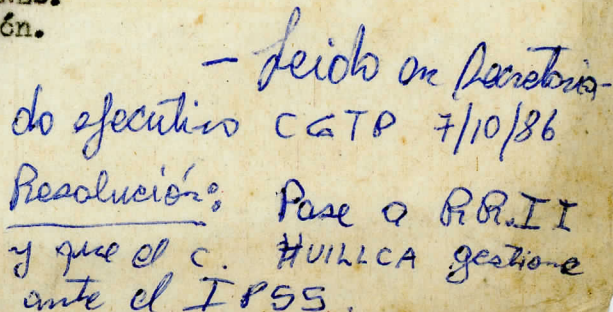 ón.
– Leido en Secretaria-
do ejecutivo CGTP 7/10/86
Resolución: Pase a RR.II
y que el c. HUILLCA gestione
ante el IPSS.